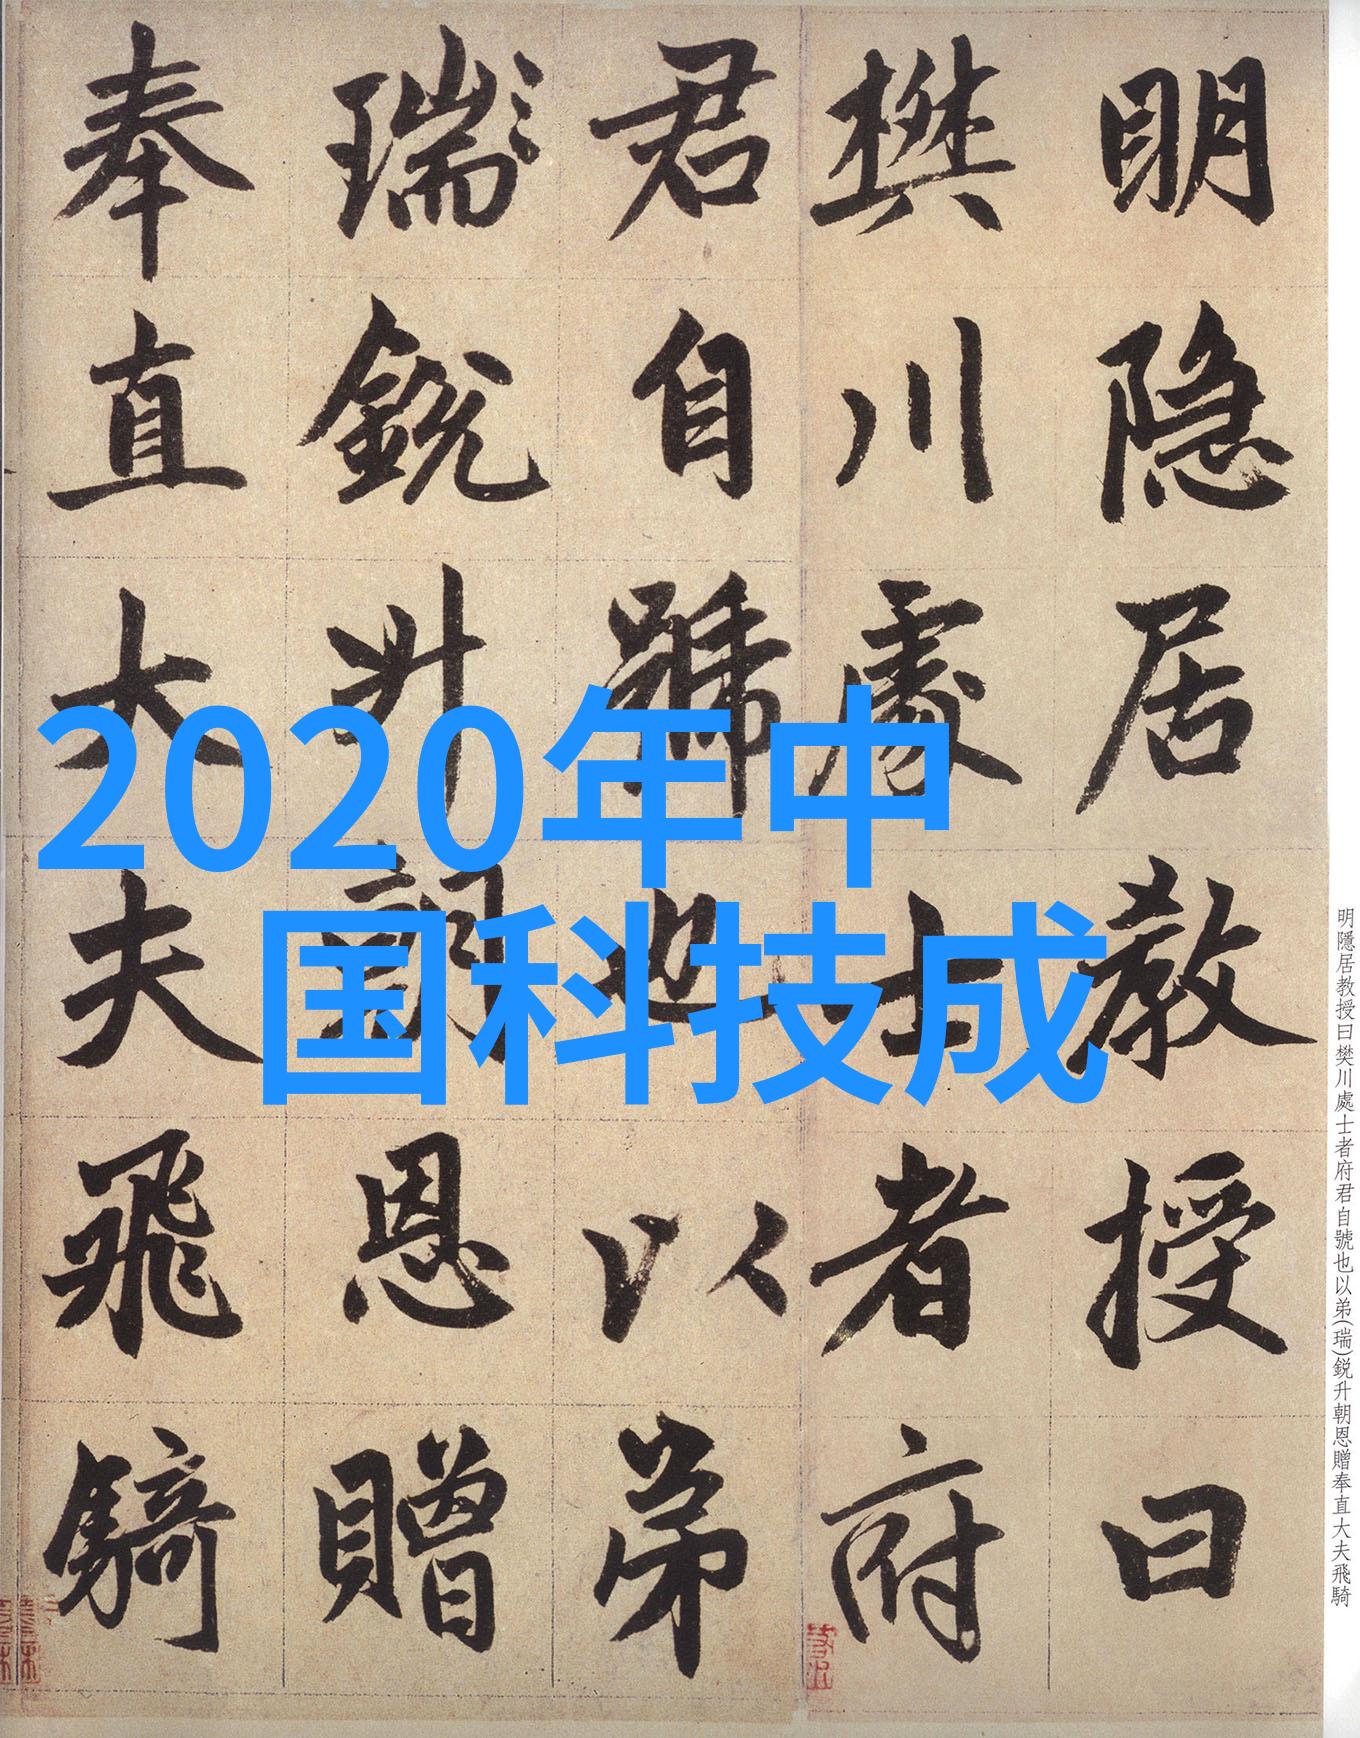 明隱居教授曰
樊川處士者府
君自號也以弟
瑞鋭升朝恩贈
奉直大夫飛騎
2020年中
国科技成
明隱居教授曰樊川處士者府君自號也以弟(瑞)鋭升朝恩贈奉直大夫飛騎